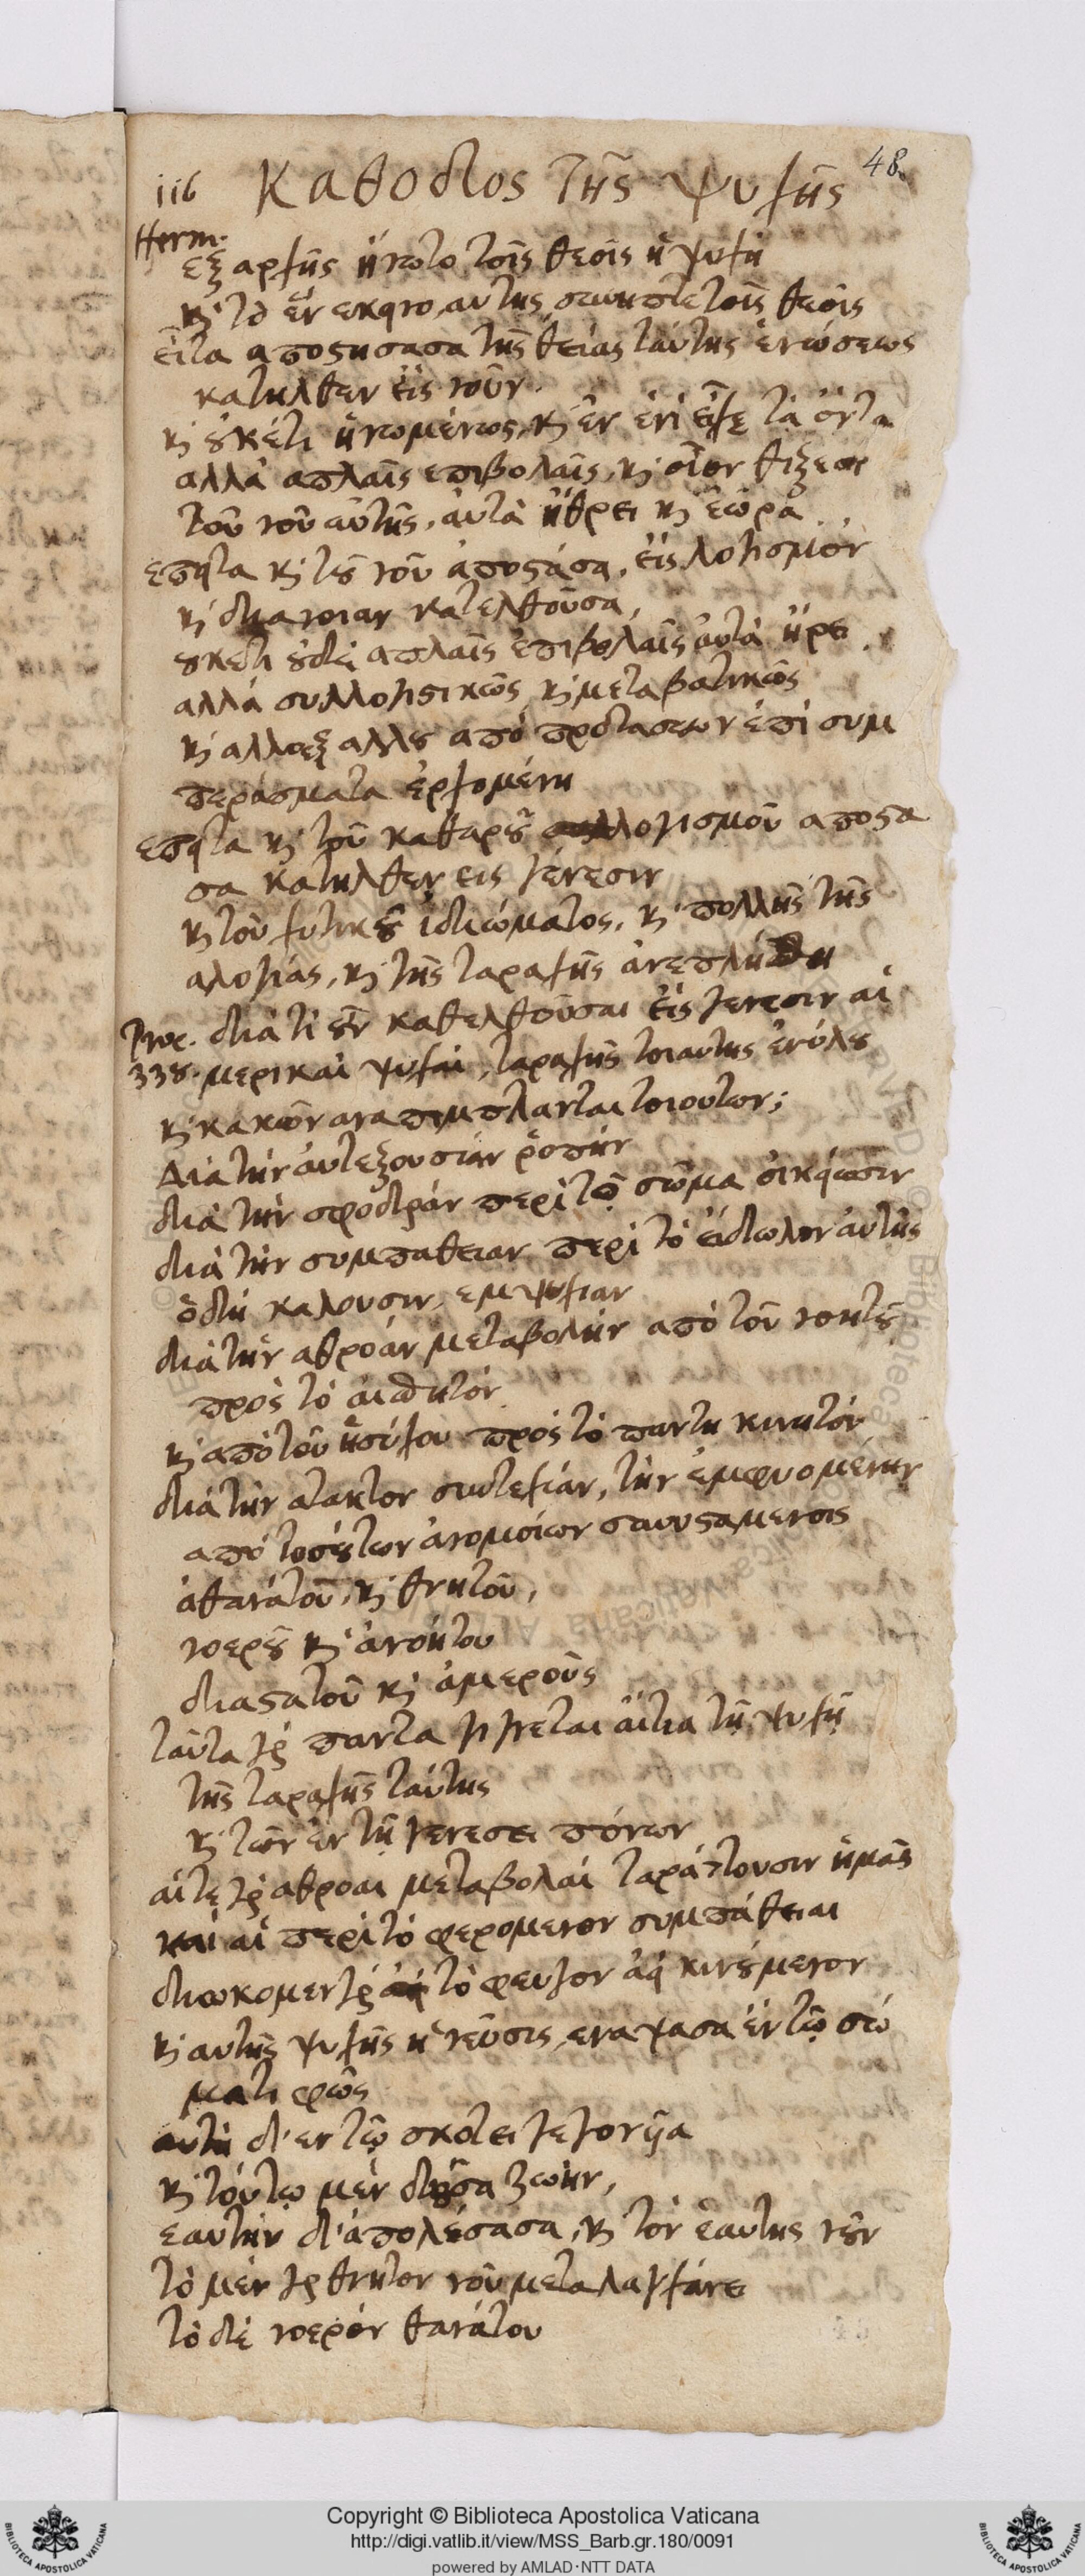 48.
116 Καθοδος τῆς ψυχῆς
Herm.
εξ αρχῆς ἥνωτο τοῖς θεοῖς ἡ ψυχὴ
κ̀ τὸ ἓν εκεῖνο αυτης συνηπτε τοῖς θεοῖς
εἶτα αποστησασα τῆς θείας ταύτης ἑνώσεως
κατηλθεν εἰς νοῦν.
κ̀ ȣκέτι ἡνωμένως, κ̀ ἐν ἑνὶ εἶχε τὰ ὄντα
αλλὰ απλαῖς επιβολαῖς, κ̀ οἷον θιξεσι
τοῦ νοῦ αὐτῆς, αὐτὰ ἤθρει κ̀ ἑώρα
επειτα κ̀ τȣ͂ νοῦ ἀποστάσα, εἰς λογισμὸν
κ̀ διανοιαν κατελθοῦσα,
ȣκετι ȣδὲ απλαῖς ἐπιβολαῖς αὐτὰ ᾕρει
αλλὰ συλλογιστικῶς κ̀ μεταβατικῶς
κ̀ αλλο εξ αλλȣ από προτασεων ἐπὶ συμ
περάσματα ἐρχομένη
επειτα κ̀ τοῦ καθαρȣ͂ λογισμοῦ αποστα
σα κατηλθεν εις γένεσιν
κ̀ τοῦ φυτικȣ͂ ἰδιώματος, κ̀ πολλῆς τῆς
αλογίας, κ̀ τῆς ταραχῆς ἀνεπλήσθη
Proc. διὰ τί ȣ͂ν κατελθοῦσαι εἰς γενεσιν αἱ
338. μερικαὶ ψυχαὶ, ταραχῆς τοιαυτης ἐνύλȣ
κ̀ κακῶν αναπιμπλανται τοιουτων;
Διὰ τὴν αὐτεξουσίαν ῥοπὴν
διὰ τὴν σφοδρὰν περὶ τὸ σῶμα οἰκείωσιν
διὰ τὴν συμπαθειαν περὶ τὸ εἴδωλον αὐτῆς
ὃ δὴ καλουσιν εμψυχιαν
διὰ τὴν αθρόαν μεταβολὴν από τοῦ νοητȣ͂
πρὸς τὸ αισθητόν
κ̀ από τοῦ ἡσύχου πρὸς τὸ παντη κινητόν
διὰ τὴν ατακτον συντεχίαν, τὴν ἐμφυομένην
από τοσȣ́των ἀνομοίων συνισταμενοις
ἀθανάτου, κ̀ θνητοῦ,
νοερȣ͂ κ̀ ἀνοήτου
διαστατοῦ κ̀ ἀμεροῦς
ταῦτα γ̀ παντα γίγνεται αἴτια τῇ ψυχῇ
τῆς ταραχῆς ταύτης
κ̀ τῶν ἐν τῇ γενεσει πόνων
αἵ τε γ̀ αθροαι μεταβολαὶ ταράττουσιν ἡμᾶς
καὶ αἱ περὶ τὸ φερομενον συμπάθειαι
διωκομεν γ̀ τὸ φευγον ἀεὶ κινȣ́μενον
κ̀ αυτῆς ψυχῆς ἡ νεῦσις, εναψασα ἐν τῷ σώ
ματι φῶς
αυτὴ δ' εν τῷ σκοτει γεγονῦα
κ̀ τούτῳ μὲν δοῦσα ζωὴν,
εαυτὴν δ' ἀπολέσασα, κ̀ τὸν ἑαυτης νȣ͂ν
τὸ μὲν γ̀ θνητον νοῦ μεταλαγχάνει
τὸ δὲ νοερόν θανάτου
Copyright © Biblioteca Apostolica Vaticana
http://digi.vatlib.it/view/MSS_Barb.gr.180/0091
powered by AMLAD·NTT DATA